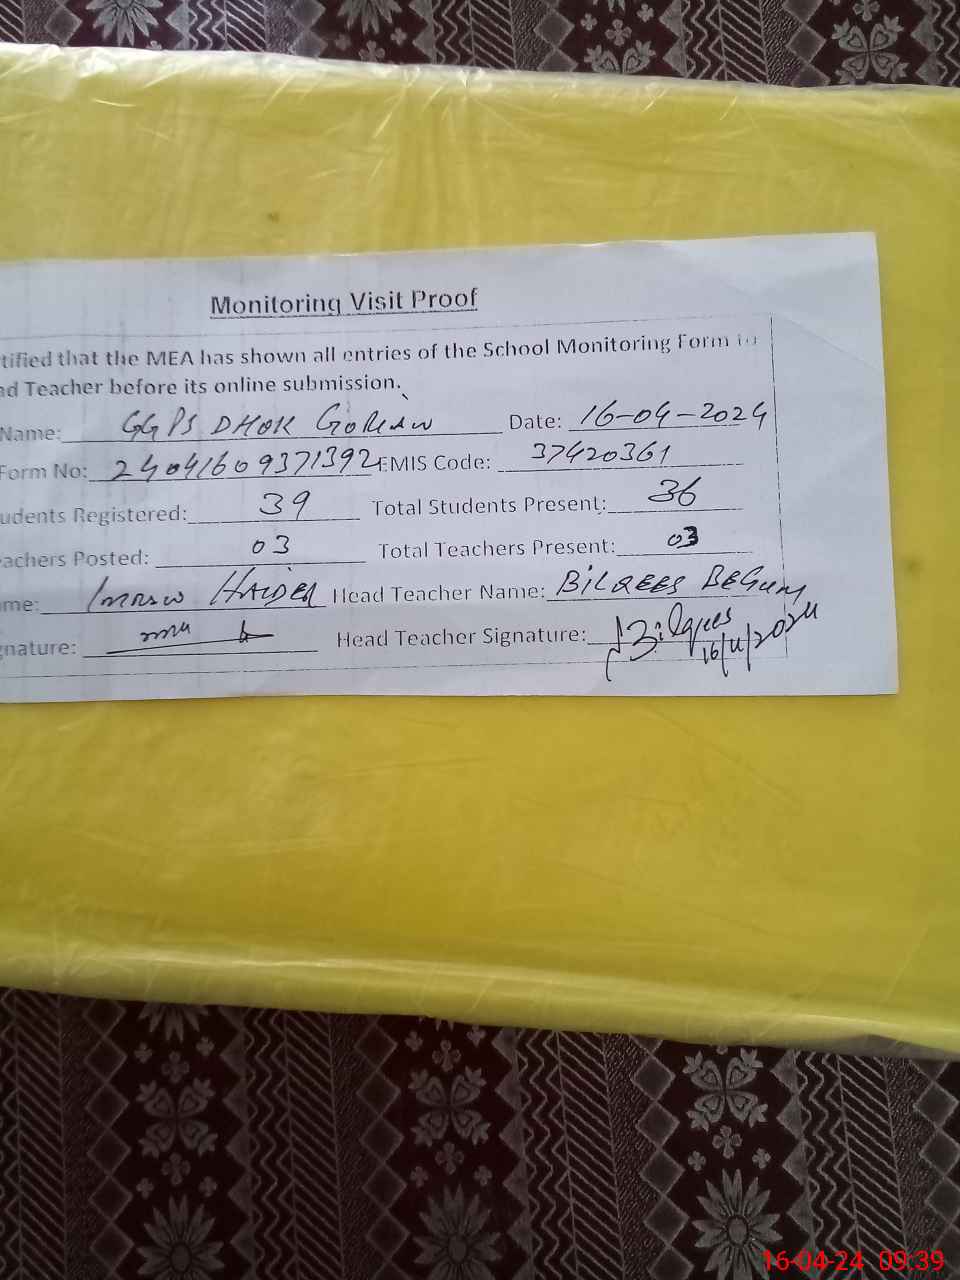 Monitoring Visit Proof
tified that the MEA has shown all entries of the School Monitoring Form to
ad Teacher before its online submission.
Name: GGPS DHOK GORIAN Date: 16-04-2024
Form No: 24041609371392 EMIS Code: 37420361
udents Registered: 39 Total Students Present: 36
achers Posted: 03 Total Teachers Present: 03
me: Imran HAIDER Head Teacher Name: BILQEES BEGUM
nature: Head Teacher Signature: Bilqees
16/4/2024
16-04-24 09:39